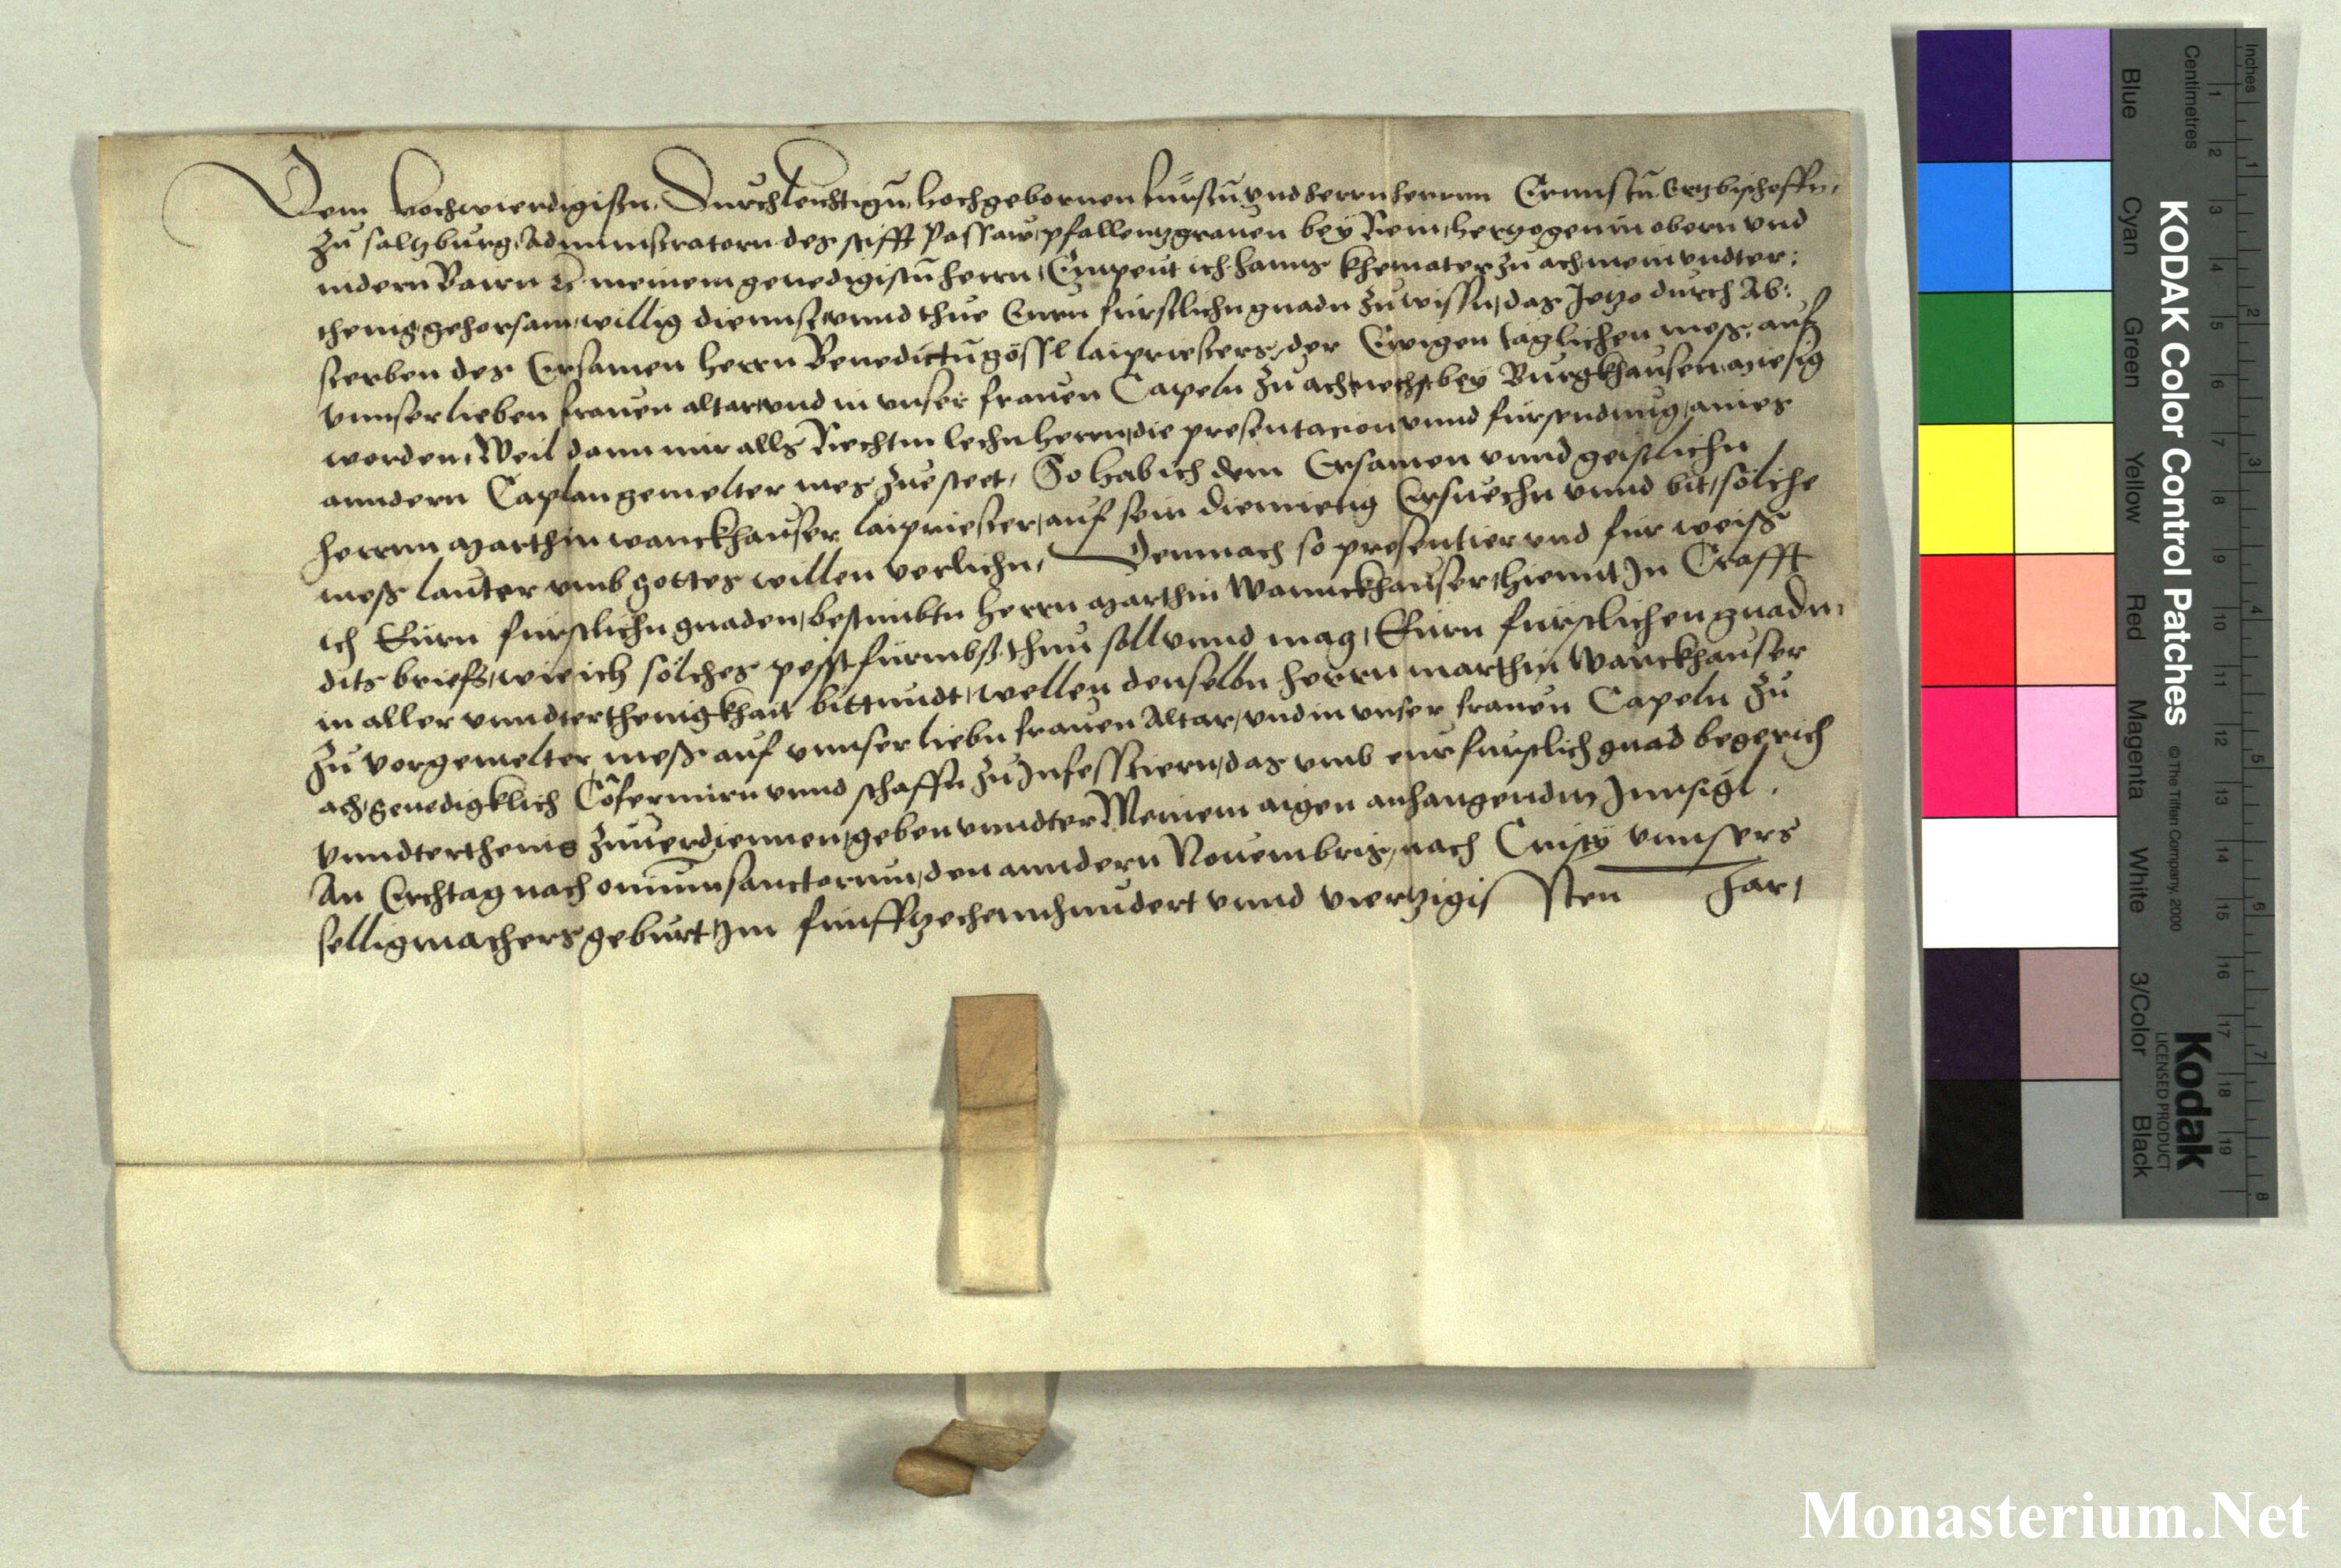 Dem hochwierdigistn, Durchleuchtign, hochgebornen fürstn vnd herrn herrnn Ernnstn Ertzbischoffn,
Zu saltzburg, Administratorn des stifft Passaw, pfallentzgrauen bey Rein, hertzogen in obern vnd
nidern Bairn meinem genedigistn herrn, Empeut ich hanns khemater zu ach mein vndter:
thenig gehorsam, willig diennst vnnd thue Eurn fürstlichn gnadn zu wissn, das Jetzo durch Ab:
sterben des Ersamen herrn Benedictn gössl laipriesters, der Ewigen täglichen mess, auf
vnnser lieben frauen altar, vnd in vnser frauen Capeln zu ach nechst bey Burgkhausen, miesig
worden, Weil dann mir alls Rechtm lechn herrn, die presentacion vnnd fürsendung, aines
anndern Caplan gemelter mes zuesteet, So hab ich dem Ersamen vnnd geistlichn
herrnn Marthin wanckhauser laipriester, auf sein diemietig Ersuechn vnnd bit, sölche
mess lauter vmb gottes willen verlichn, Demnach so presentier vnd für weiss
ich Eurn fürstlichn gnaden, bestimbtn herrn Marthin Wannckhauser, hiemit Jn Crafft
dits briefs, wie ich sölches pesst fürmbs thun soll vnnd mag, Eurn fürstlichen gnadn,
in aller vnndterthenigkhait bittundt, wellen denselbn herrn marthin Wanckhauser
zu vorgemelter mess auf vnnser liebn frauen Altar, vnd in vnser frauen Capeln zu
ach, genedigklich Cofermirn vnnd schaffn zu Jnfesstiern, das vmb eur fürstlich gnad beger ich
vnndterthenig zuuerdiennen, geben vnndter Meinem aigen anhangenden Jnnsigl.
An Erchtag nach omnium sanctorum, den anndern Nouembris, nach Cristy vnnsers
selligmachers geburt, Jm fünfftzechenhundert vnnd viertzigis sten Jar,
KODAK Color Control Patches
© The Tiffen Company, 2000
Kodak
LICENSED PRODUCT
Inches 1 2 3 4 5 6 7 8
Centimetres 1 2 3 4 5 6 7 8 9 10 11 12 13 14 15 16 17 18 19
Blue Cyan Green Yellow Red Magenta White 3/Color Black
Monasterium.Net